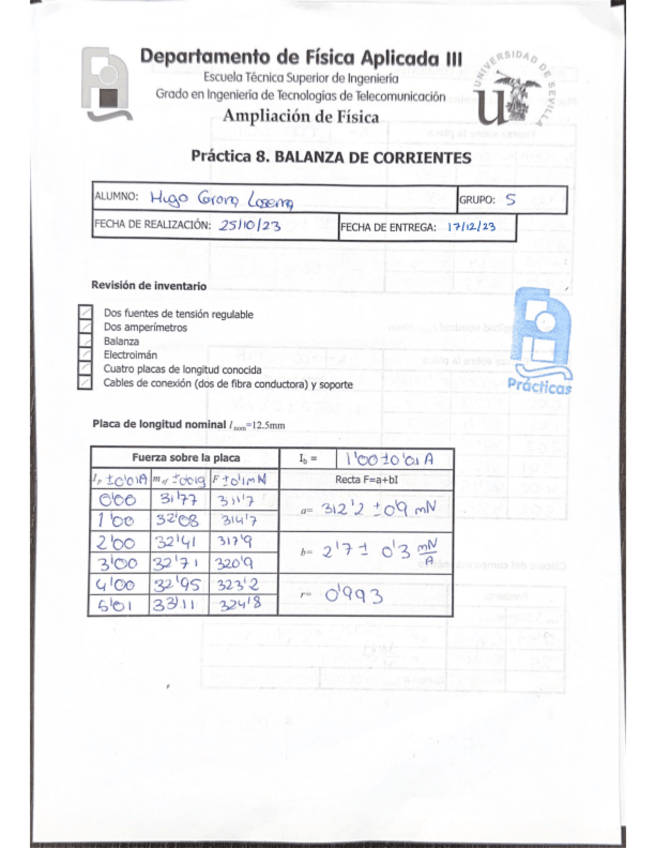 Departamento de Física Aplicada III
Escuela Técnica Superior de Ingeniería
Grado en Ingeniería de Tecnologías de Telecomunicación
Ampliación de Física
UNIVERSIDAD DE SEVILLA
Práctica 8. BALANZA DE CORRIENTES
ALUMNO: Hugo Corona GRUPO: 5
FECHA DE REALIZACIÓN: 25/10/23 FECHA DE ENTREGA: 17/12/23
Revisión de inventario
Dos fuentes de tensión regulable
Dos amperímetros
Balanza
Electroimán
Cuatro placas de longitud conocida
Cables de conexión (dos de fibra conductora) y soporte
Prácticas
Placa de longitud nominal l nom=12.5mm
Fuerza sobre la placa I_b = 1'00±0'01A
±0'01A m_ef ±0'01g F ±0'1mN Recta F=a+bI
0'00 31'77 311'7 a= 312'2 ±0'9 mN
1'00 32'08 314'7
2'00 32'41 317'9 b= 2'7± 0'3 mN/A
3'00 32'71 320'9
4'00 32'95 323'2 r= 0'993
5'01 33'11 324'8